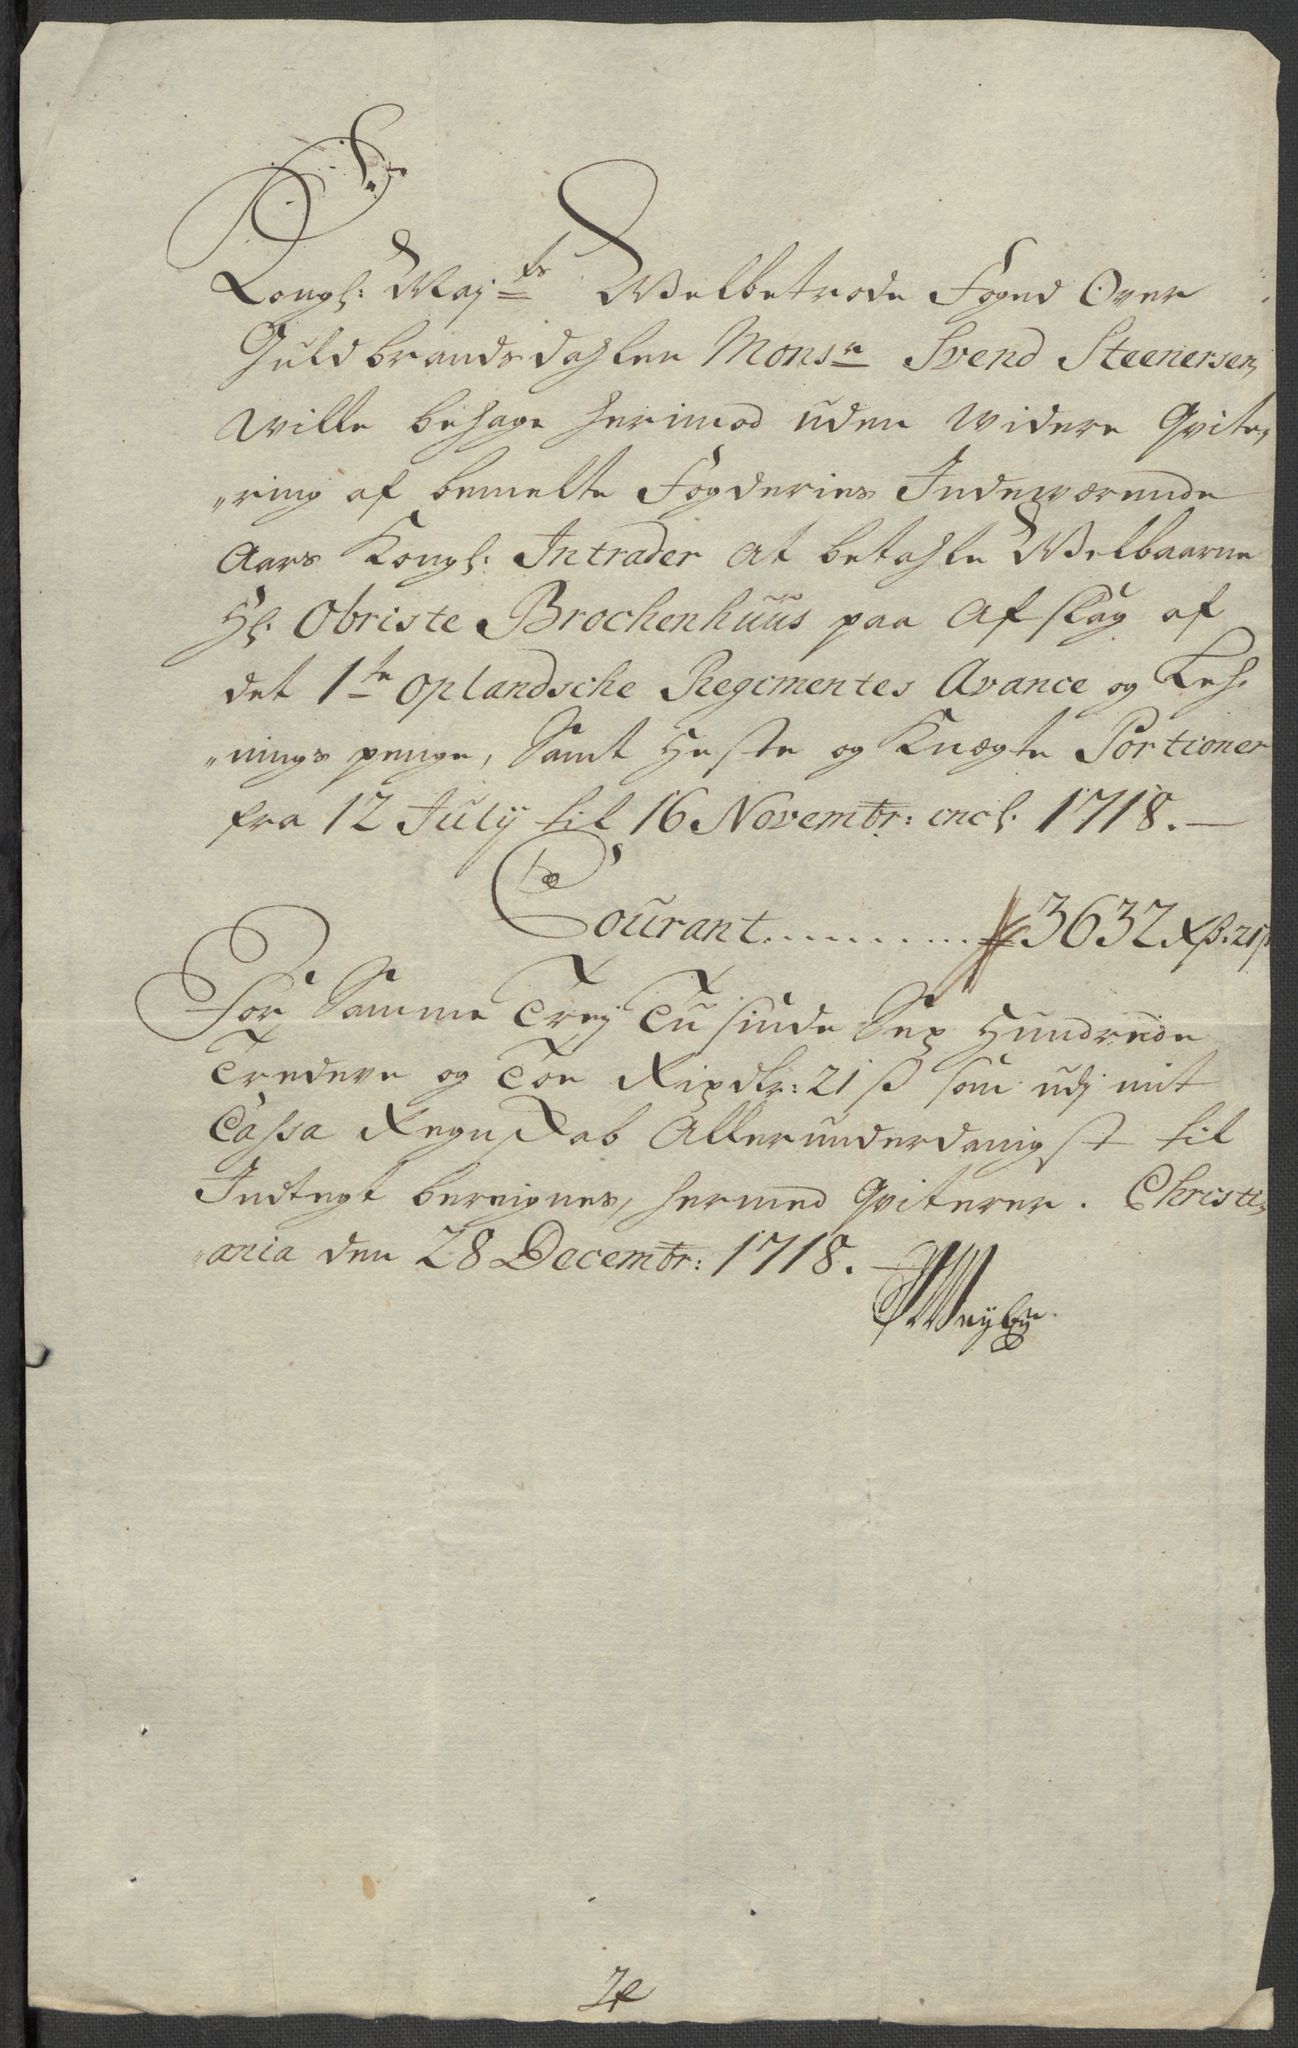 Kongl: Maj:ts Welbetrode Foged Over
Guldbrandsdahlen Monsr Svend Steenersen,
Wille behage herimod uden Widere Qvite,,
,,ring af bemelte Fogderies Indewærende
Aars Kongl: Intrader at betahle Welbaarne
Hl: Obriste Brochenhuus paa Afslag af
det 1te Oplandsche Regimentes Avance og Leh,,
,,nings penge, Samt Heste og Knegte Portioner
fra 12 Julij til 16 Novembr: incl: 1718. —
Courant .......... 3632 Rdr: 21 ß
For Samme Trej Tusinde Sex Hundrede
Tredeve og Toe Rixdlr: 21 ß som udj mit
Cassa Regnskab Allerunderdanigst til
Indtegt bereignes, hermed Qviterer. Christi,,
,,ania den 28 Decembr: 1718. —